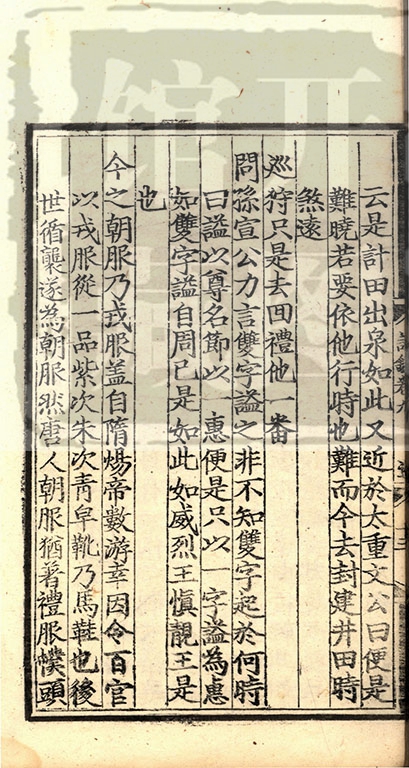 云是計田出泉如此又近於太重文公曰便是
難曉若要依他行時也難而今去封建井田時
煞遠
巡狩只是去回禮他一番
問孫宣公力言雙字謚之非不知雙字起於何時
曰謚以尊名節以一惠便是只以一字謚為惠
如雙字謚自周已是如此如威烈王慎靚王是
也
今之朝服乃戎服盖自隋煬帝數游幸因令百官
以戎服從一品紫次朱次青皁靴乃馬鞋也後
世循襲遂為朝服然唐人朝服猶著禮服幞頭